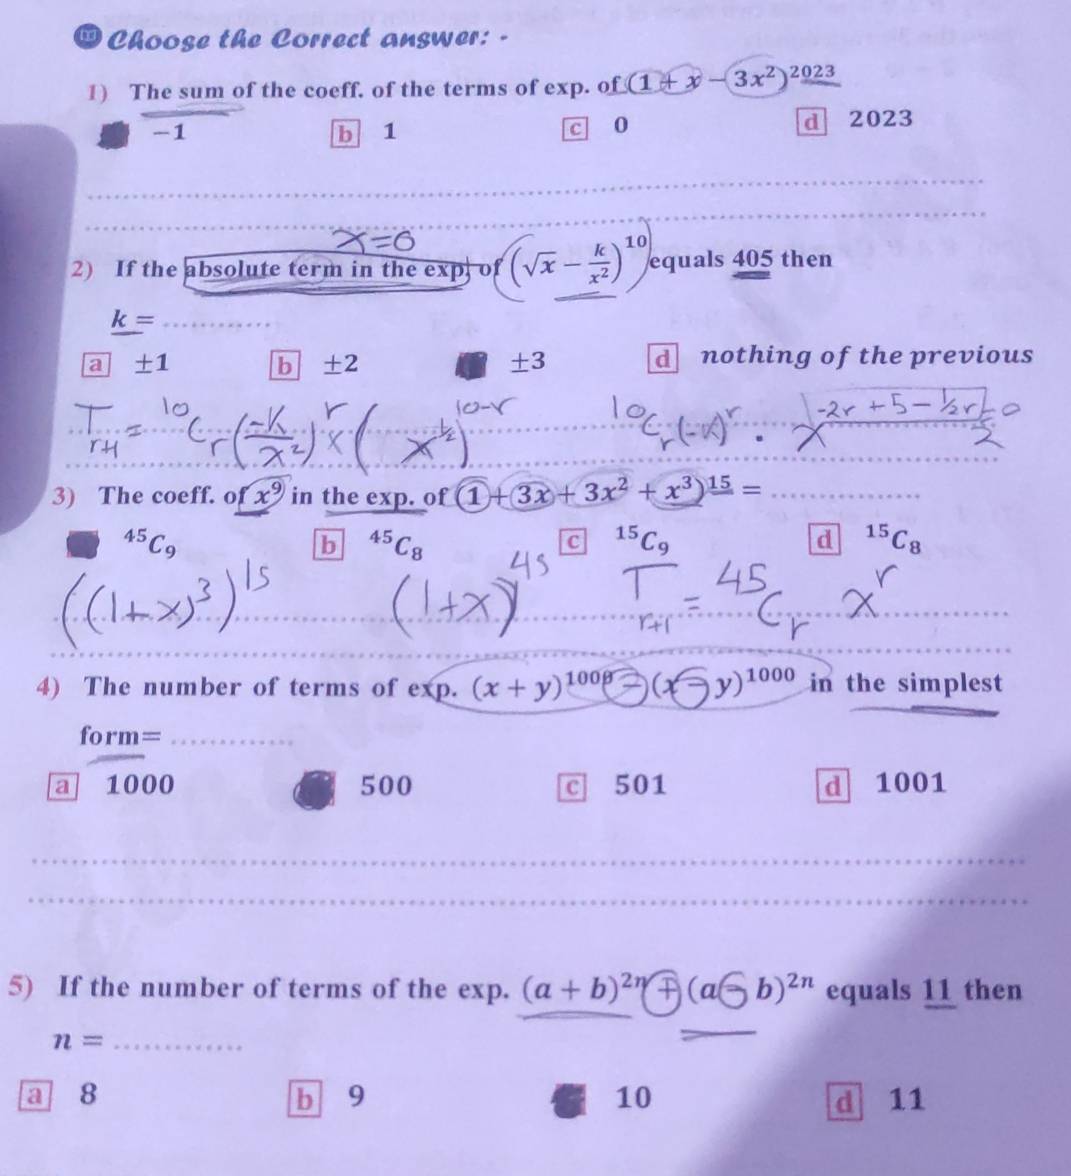 Choose the Correct answer: -
1) The sum of the coeff. of the terms of exp. of (1 + x − 3x²)²⁰²³
−1 b 1 c 0 d 2023
x=0
2) If the absolute term in the exp. of (√x − k/x²)¹⁰ equals 405 then
k = ............
a ±1 b ±2 ±3 d nothing of the previous
T r+1 = ¹⁰C r (−k/x²)^r × (x^½)^10-r ¹⁰C r (−k)^r . x^-2r + 5 − ½r = 0
3) The coeff. of x⁹ in the exp. of (1 + 3x + 3x² + x³)¹⁵ = ................
⁴⁵C₉ b ⁴⁵C₈ c ¹⁵C₉ d ¹⁵C₈
((1+x)³)¹⁵ (1+x)⁴⁵ T r+1 = ⁴⁵C r x^r
4) The number of terms of exp. (x + y)¹⁰⁰⁰ − (x − y)¹⁰⁰⁰ in the simplest
form= .............
a 1000 500 c 501 d 1001
5) If the number of terms of the exp. (a + b)²ⁿ + (a − b)²ⁿ equals 11 then
n = .............
a 8 b 9 10 d 11